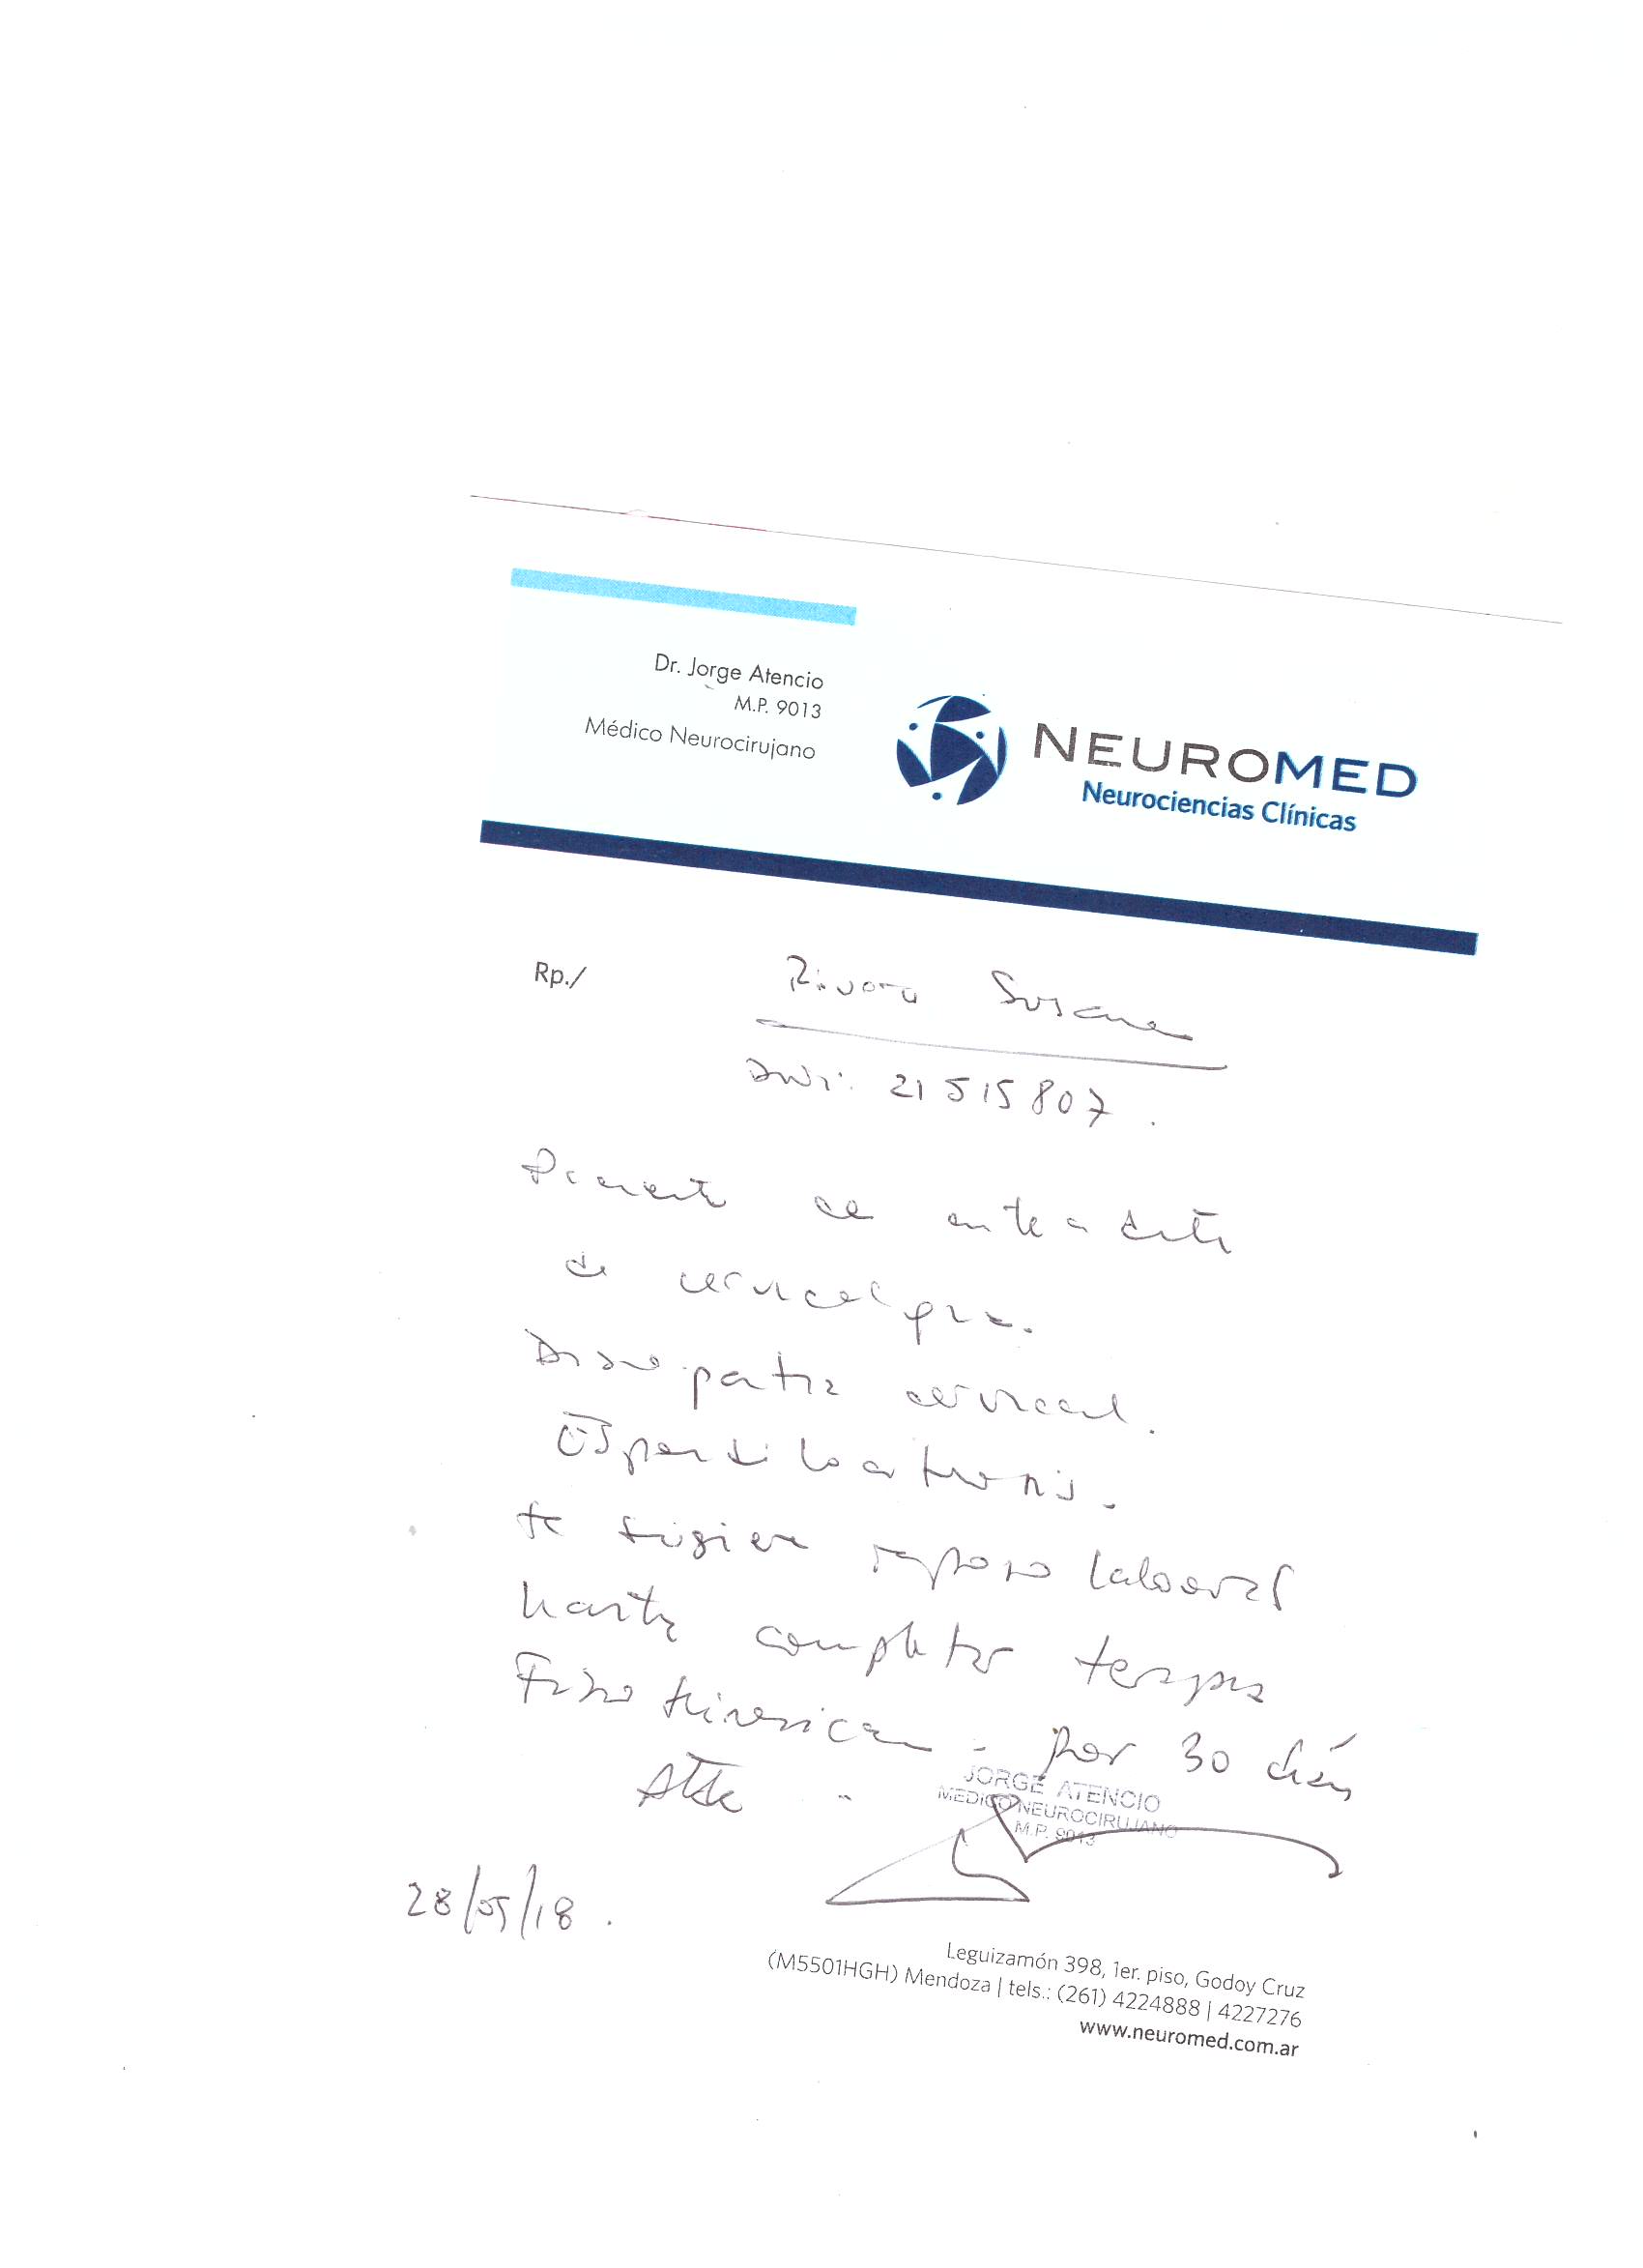 Dr. Jorge Atencio
M.P. 9013
Médico Neurocirujano
NEUROMED
Neurociencias Clínicas
Rp./
Rivora Susana
DNI: 21515807.
Paciente con antecedente
de cervicalgia.
Discopatia cervical.
Espondiloartrosis.
Se sugiere reposo laboral
hasta completar terapia
Fisiokinesica - por 30 días
Atte
JORGE ATENCIO
MEDICO NEUROCIRUJANO
M.P. 9013
28/05/18.
Leguizamón 398, 1er. piso, Godoy Cruz
(M5501HGH) Mendoza | tels.: (261) 4224888 | 4227276
www.neuromed.com.ar